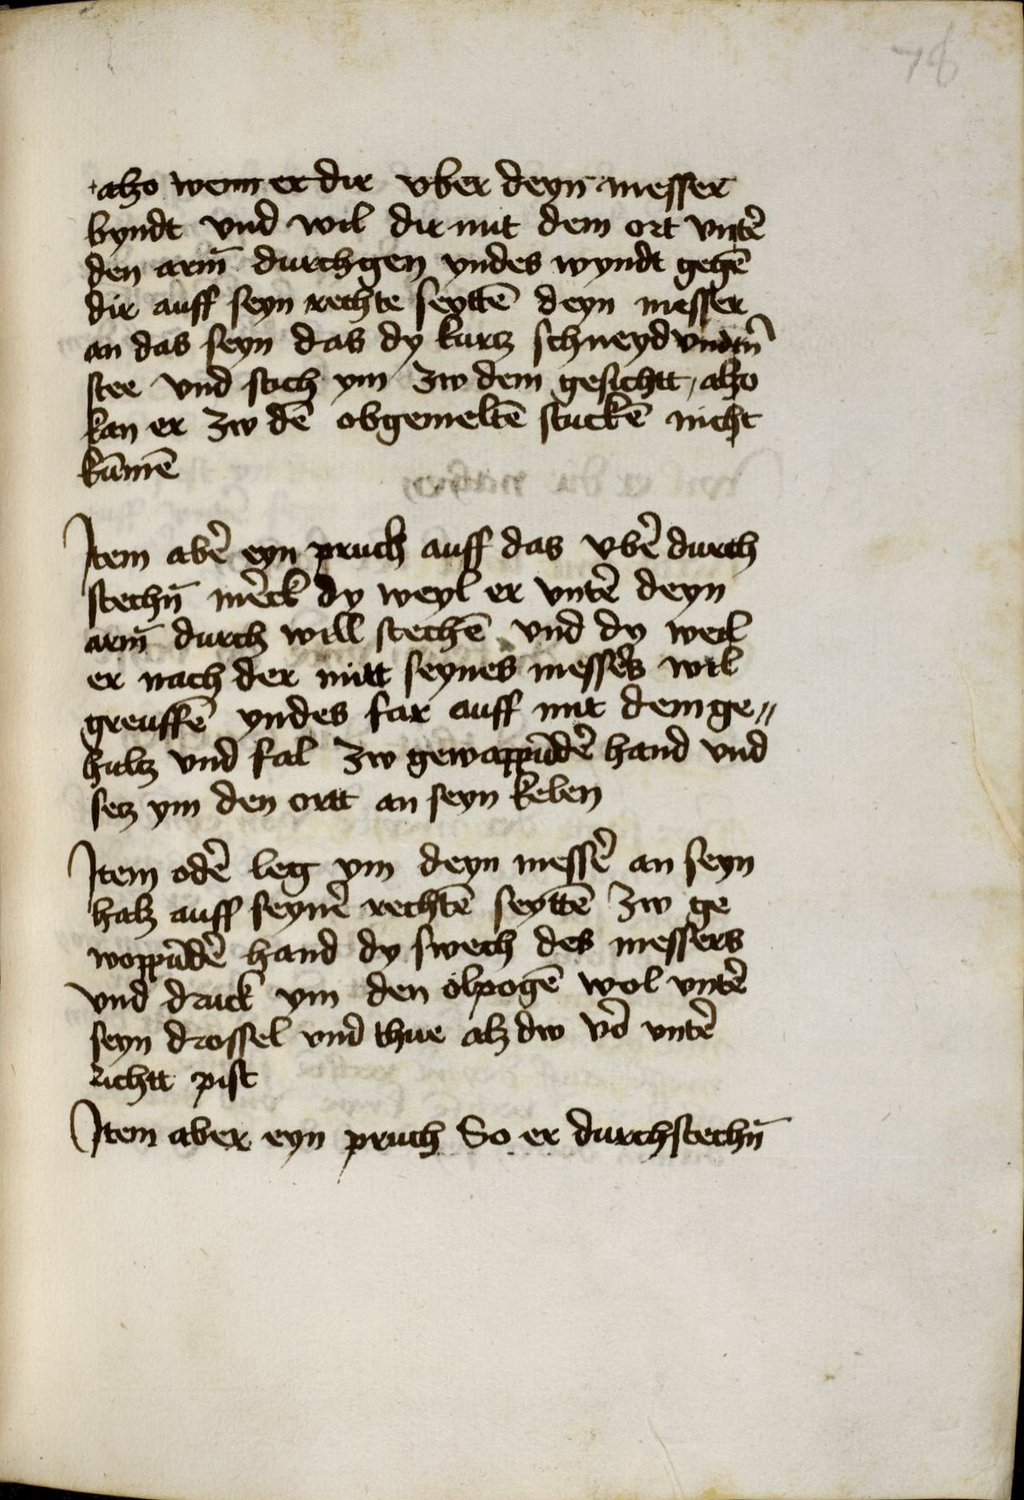 78
also wenn er dir vber deyn messer
byndt vnd wil dir mit dem ort vntē
den arm̄ durchgen yndes wyndt gegē
dir auff seyn rechte seyttē deyn messer
an das seyn das dy kurcz schneyd vndtn̄
stee vnd stich ym zw dem gesichtt, also
kan er zw dē obgemeltē stuckē nicht
kūmē
Item abē eyn pruch auff das vbē durch
stechn̄ mēck dy weyl er vntē deyn
arm̄ durch will stechē vnd dy weil
er nach der mitt seynes messers wil
greuffē yndes far auff mit dem ge〃
hultz vnd fal zw gewappūdē hand vnd
secz ym den ortt an seyn keln
Item odē leg ym deyn messē an seyn
halz auff seynē rechtē seyttē zw ge
woppūdē hand dy swech des messers
vnd druck ym den olpogē wol vntē
seyn drossel vnd thue alz dw vō vntē
richtt pist
Item aber eyn pruch So er durchstechn̄